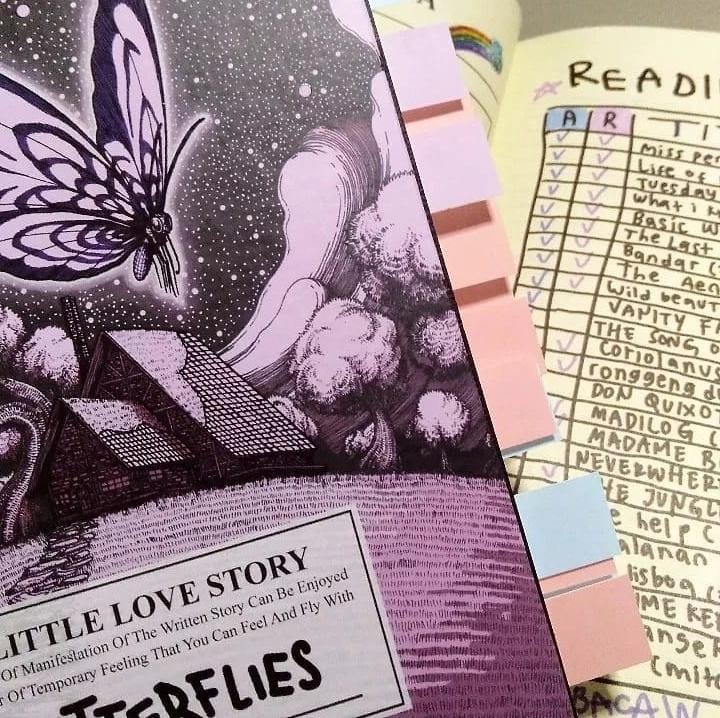 LITTLE LOVE STORY
Of Manifestation Of The Written Story Can Be Enjoyed
Of Temporary Feeling That You Can Feel And Fly With
TTERFLIES
A
READI
A R TI
Miss Pe
Life of
Tuesday
What i k
Basic W
The Last
Bandar
The Aen
Wild beaut
VANITY F
THE SONG O
Coriolanus
ronggeng d
DON QUIXO
MADILOG
MADAME B
NEVERWHER
E JUNGL
e help
alanan
lisbog
ME KE
ange
(mit
BACAIN